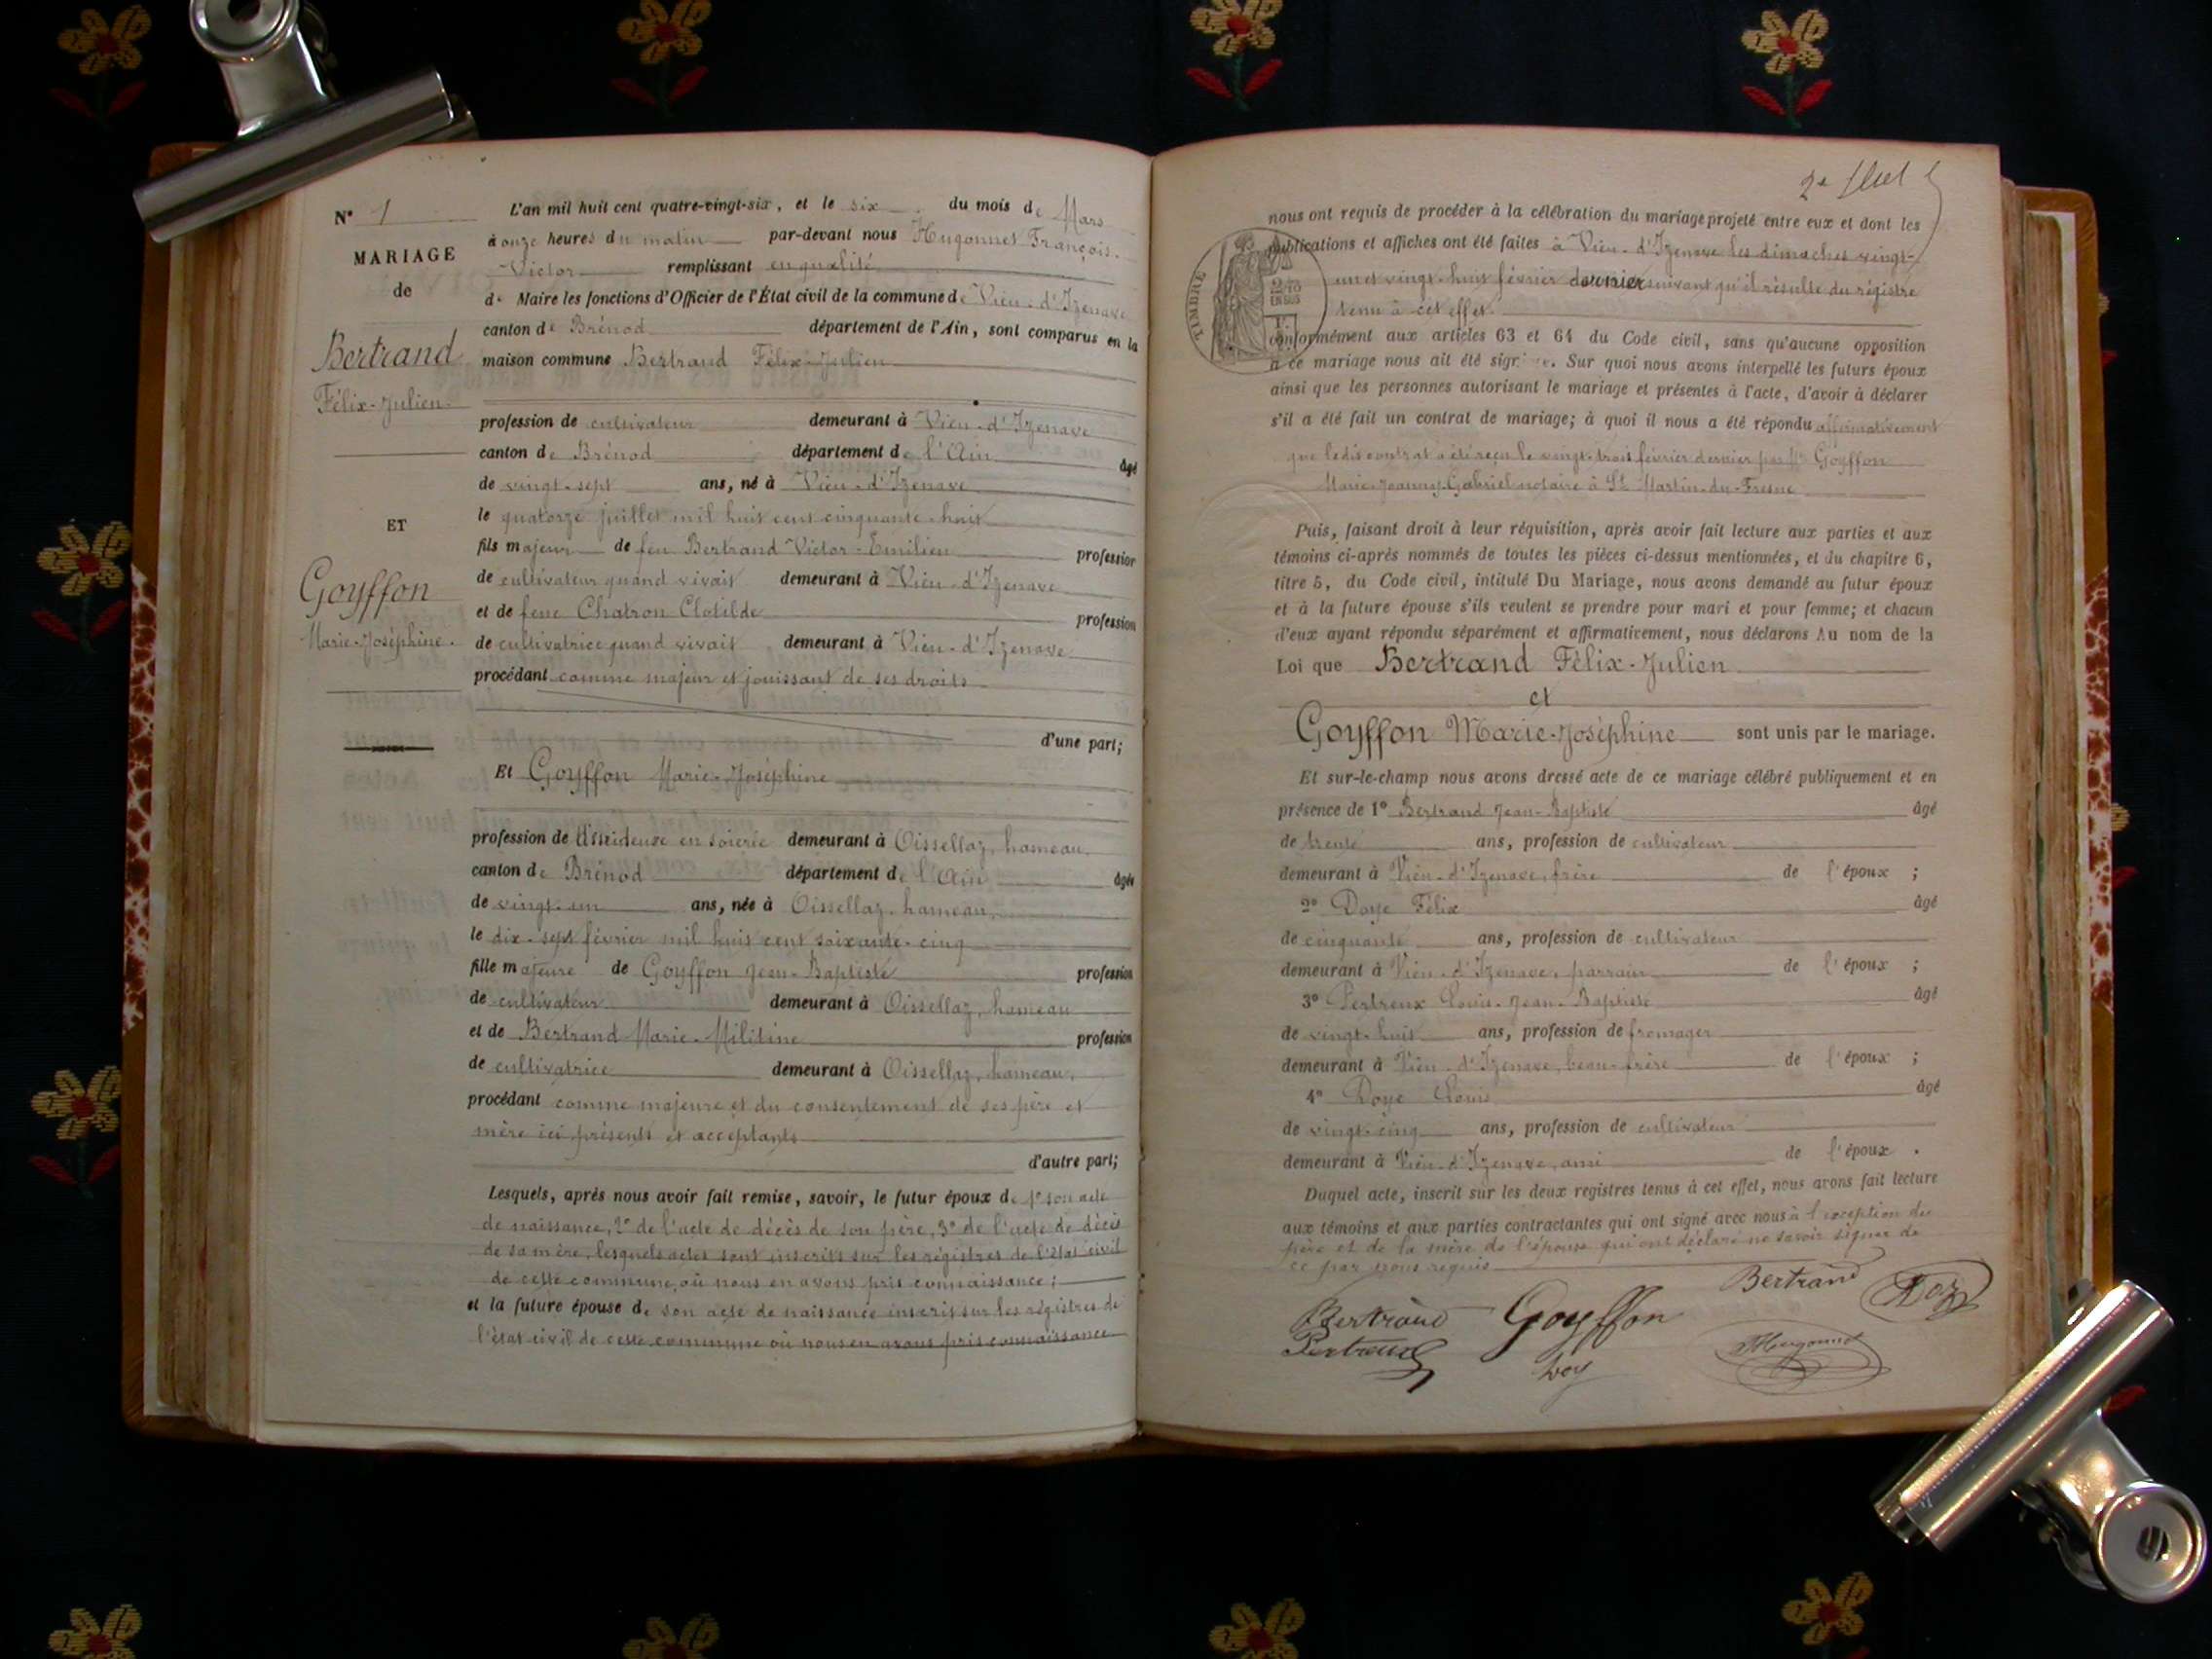 N° 1
MARIAGE
de
Bertrand
Félix-Julien
ET
Goyffon
Marie-Joséphine
L'an mil huit cent quatre-vingt-six, et le six du mois de Mars
à onze heures du matin par-devant nous Hugonnet François-
Victor remplissant en qualité
de Maire les fonctions d'Officier de l'État civil de la commune de Vieu-d'Izenave
canton de Brénod département de l'Ain, sont comparus en la
maison commune Bertrand Félix-Julien
profession de cultivateur demeurant à Vieu-d'Izenave
canton de Brénod département de l'Ain âgé
de vingt-sept ans, né à Vieu-d'Izenave
le quatorze juillet mil huit cent cinquante-huit
fils majeur de feu Bertrand Victor-Emilien profession
de cultivateur quand vivait demeurant à Vieu-d'Izenave
et de feue Chatron Clotilde profession
de cultivatrice quand vivait demeurant à Vieu-d'Izenave
procédant comme majeur et jouissant de ses droits
d'une part;
Et Goyffon Marie-Joséphine
profession de en soierie demeurant à Oissellaz, hameau
canton de Brénod département de l'Ain âgée
de vingt-un ans, née à Oissellaz, hameau,
le dix-sept février mil huit cent soixante-cinq
fille majeure de Goyffon Jean-Baptiste profession
de cultivateur demeurant à Oissellaz, hameau
et de Bertrand Marie-Militine profession
de cultivatrice demeurant à Oissellaz, hameau,
procédant comme majeure et du consentement de ses père et
mère ici présents et acceptants
d'autre part;
Lesquels, après nous avoir fait remise, savoir, le futur époux de 1° son acte
de naissance, 2° de l'acte de décès de son père, 3° de l'acte de décès
de sa mère, lesquels actes sont inscrits sur les régistres de l'état civil
de cette commune, où nous en avons pris connaissance;
et la future épouse de son acte de naissance inscrit sur les régistres de
l'état civil de cette commune où nous en avons pris connaissance
2e
nous ont requis de procéder à la célébration du mariage projeté entre eux et dont les
publications et affiches ont été faites à Vieu-d'Izenave les dimaches vingt-
un et vingt-huit février dernier suivant qu'il résulte du régistre
tenu à cet effet.
TIMBRE
2/10
EN SUS
conformément aux articles 63 et 64 du Code civil, sans qu'aucune opposition
à ce mariage nous ait été sign. Sur quoi nous avons interpellé les futurs époux
ainsi que les personnes autorisant le mariage et présentes à l'acte, d'avoir à déclarer
s'il a été fait un contrat de mariage; à quoi il nous a été répondu affirmativement
que ledit contrat a été reçu le vingt-trois février dernier par Me Goyffon
Marie-Joanny-Gabriel notaire à St Martin-du-Fresne
Puis, faisant droit à leur réquisition, après avoir fait lecture aux parties et aux
témoins ci-après nommés de toutes les pièces ci-dessus mentionnées, et du chapitre 6,
titre 5, du Code civil, intitulé Du Mariage, nous avons demandé au futur époux
et à la future épouse s'ils veulent se prendre pour mari et pour femme; et chacun
d'eux ayant répondu séparément et affirmativement, nous déclarons Au nom de la
Loi que Bertrand Félix-Julien
et
Goyffon Marie-Joséphine sont unis par le mariage.
Et sur-le-champ nous avons dressé acte de ce mariage célébré publiquement et en
présence de 1° Bertrand Jean-Baptiste âgé
de trente ans, profession de cultivateur
demeurant à Vieu-d'Izenave, frère de l'époux ;
2° Doye Félix âgé
de cinquante ans, profession de cultivateur
demeurant à Vieu-d'Izenave, parrain de l'époux ;
3° Pertreux Louis-Jean-Baptiste âgé
de vingt-huit ans, profession de fromager
demeurant à Vieu-d'Izenave, beau-frère de l'époux ;
4° Doye Louis âgé
de vingt-cinq ans, profession de cultivateur
demeurant à Vieu-d'Izenave, ami de l'époux .
Duquel acte, inscrit sur les deux registres tenus à cet effet, nous avons fait lecture
aux témoins et aux parties contractantes qui ont signé avec nous à l'exception du
père et de la mère de l'épouse qui ont déclaré ne savoir signer de
ce par nous requis
Bertrand
Bertrand Goyffon
Pertreux
Hugonnet